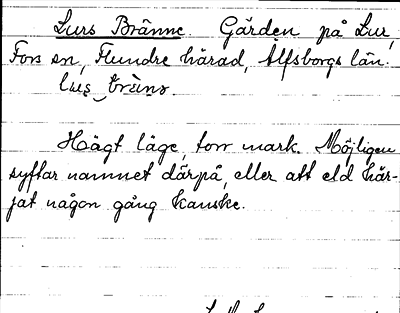 Lurs Bränne. Gården på Lur,
Fors sn, Flundre härad, Älfsborgs län.
Högt läge, torr mark. Möjligen
syftar namnet därpå, eller att eld här-
jat någon gång kanske.